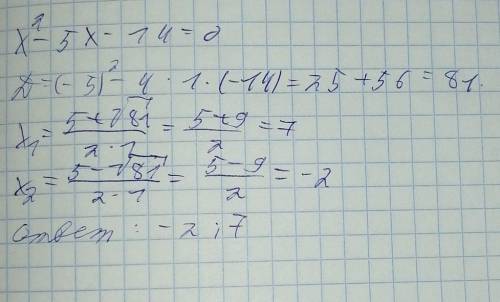 x² - 5x - 14 = 0
D = (-5)² - 4 · 1 · (-14) = 25 + 56 = 81.
x₁ = (5 + √81) / (2 · 1) = (5 + 9) / 2 = 7
x₂ = (5 - √81) / (2 · 1) = (5 - 9) / 2 = -2
ответ : -2 ; 7